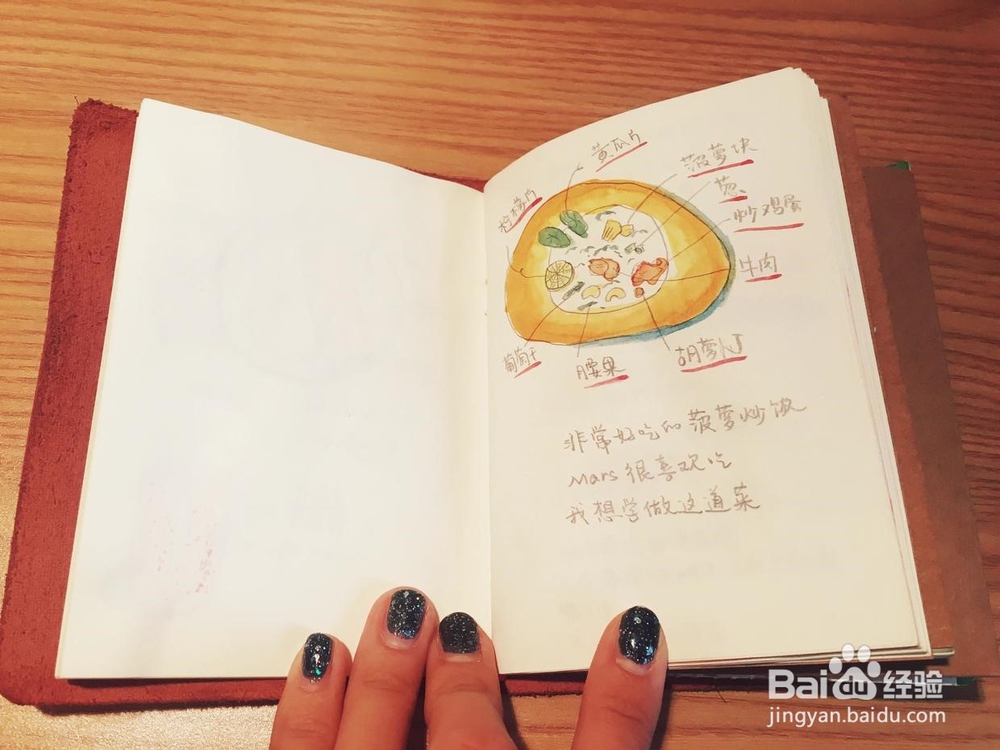 黄瓜片
菠萝块
葱
柠檬片
炒鸡蛋
牛肉
葡萄干
腰果
胡萝卜丁
非常好吃的菠萝炒饭
Mars很喜欢吃
我想学做这道菜
Baidu经验
jingyan.baidu.com